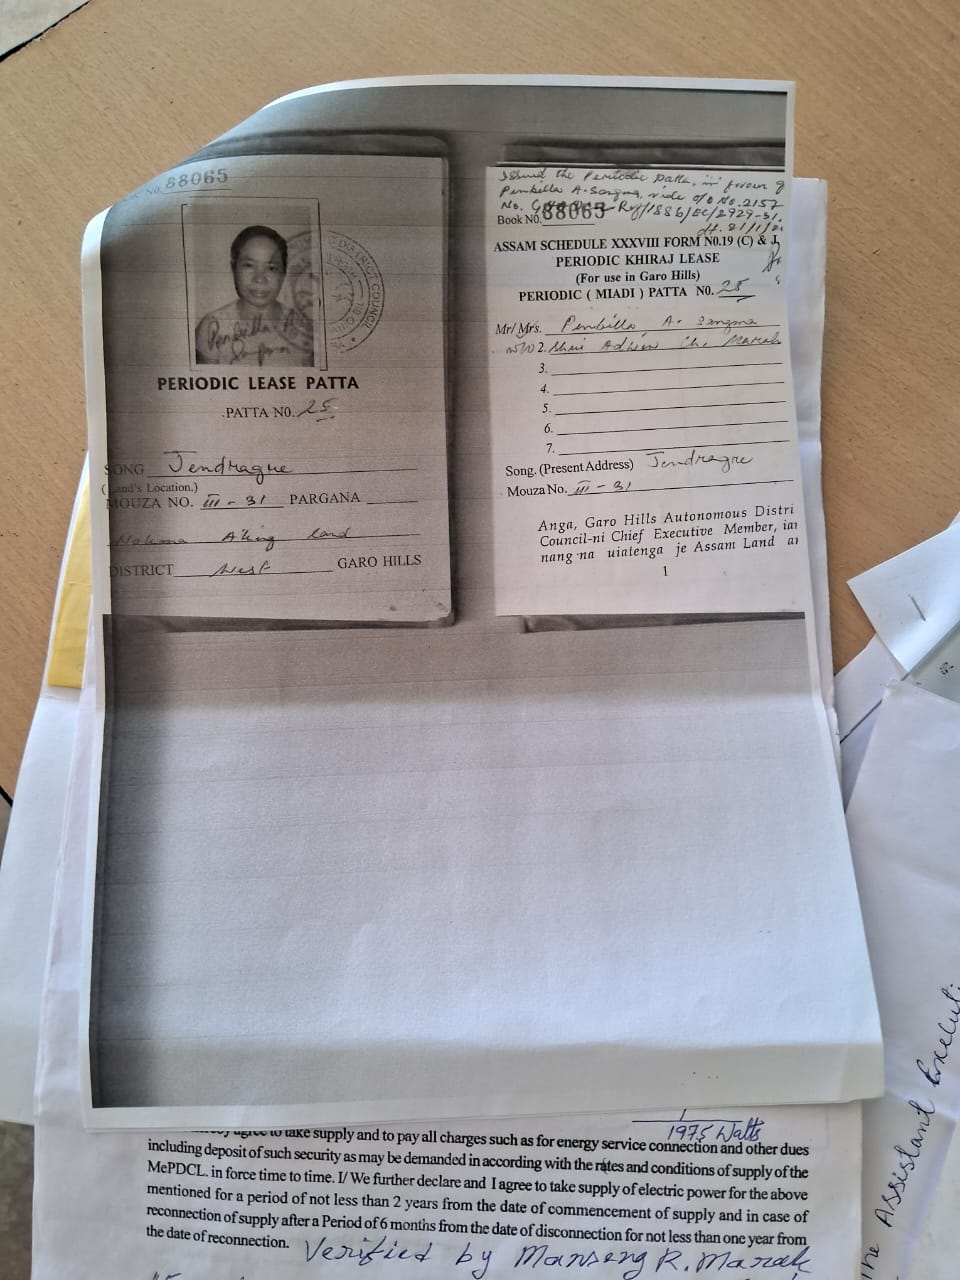 No. 88065
DISTRICT COUNCIL
Penbilla A.
Sangma
PERIODIC LEASE PATTA
PATTA N0. 25
SONG Jendragre
(Land's Location.)
MOUZA NO. III - 31 PARGANA
Nokma A'king land
DISTRICT West GARO HILLS
Issued the Periodic Patta, in favour of
Penbilla A. Sangma, vide o/o No. 2157
No. Rev/1886/EC/2929-31.
Book N0. 88065
dt. 21/1/2
ASSAM SCHEDULE XXXVIII FORM N0.19 (C) & J,
PERIODIC KHIRAJ LEASE
(For use in Garo Hills)
PERIODIC ( MIADI ) PATTA N0. 25
Mr/ Mrs. Penbilla A. Sangma
W/O 2. Shri Ch. Marak
3.
4.
5.
6.
7.
Song. (Present Address) Jendragre
Mouza No. III - 31
Anga, Garo Hills Autonomous Distri
Council-ni Chief Executive Member, ian
nang·na uiatenga je Assam Land an
1
1975 Watts
agree to take supply and to pay all charges such as for energy service connection and other dues
including deposit of such security as may be demanded in according with the rates and conditions of supply of the
MePDCL. in force time to time. I/ We further declare and I agree to take supply of electric power for the above
mentioned for a period of not less than 2 years from the date of commencement of supply and in case of
reconnection of supply after a Period of 6 months from the date of disconnection for not less than one year from
the date of reconnection.
Verified by Manseng R. Marak
The Assistant Executi